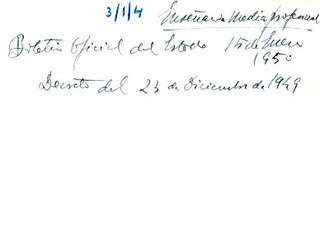 3/1/4
Enseñanza Media profesional
Boletín Oficial del Estado 15 de Enero
1950
Decreto del 23 de Diciembre de 1949